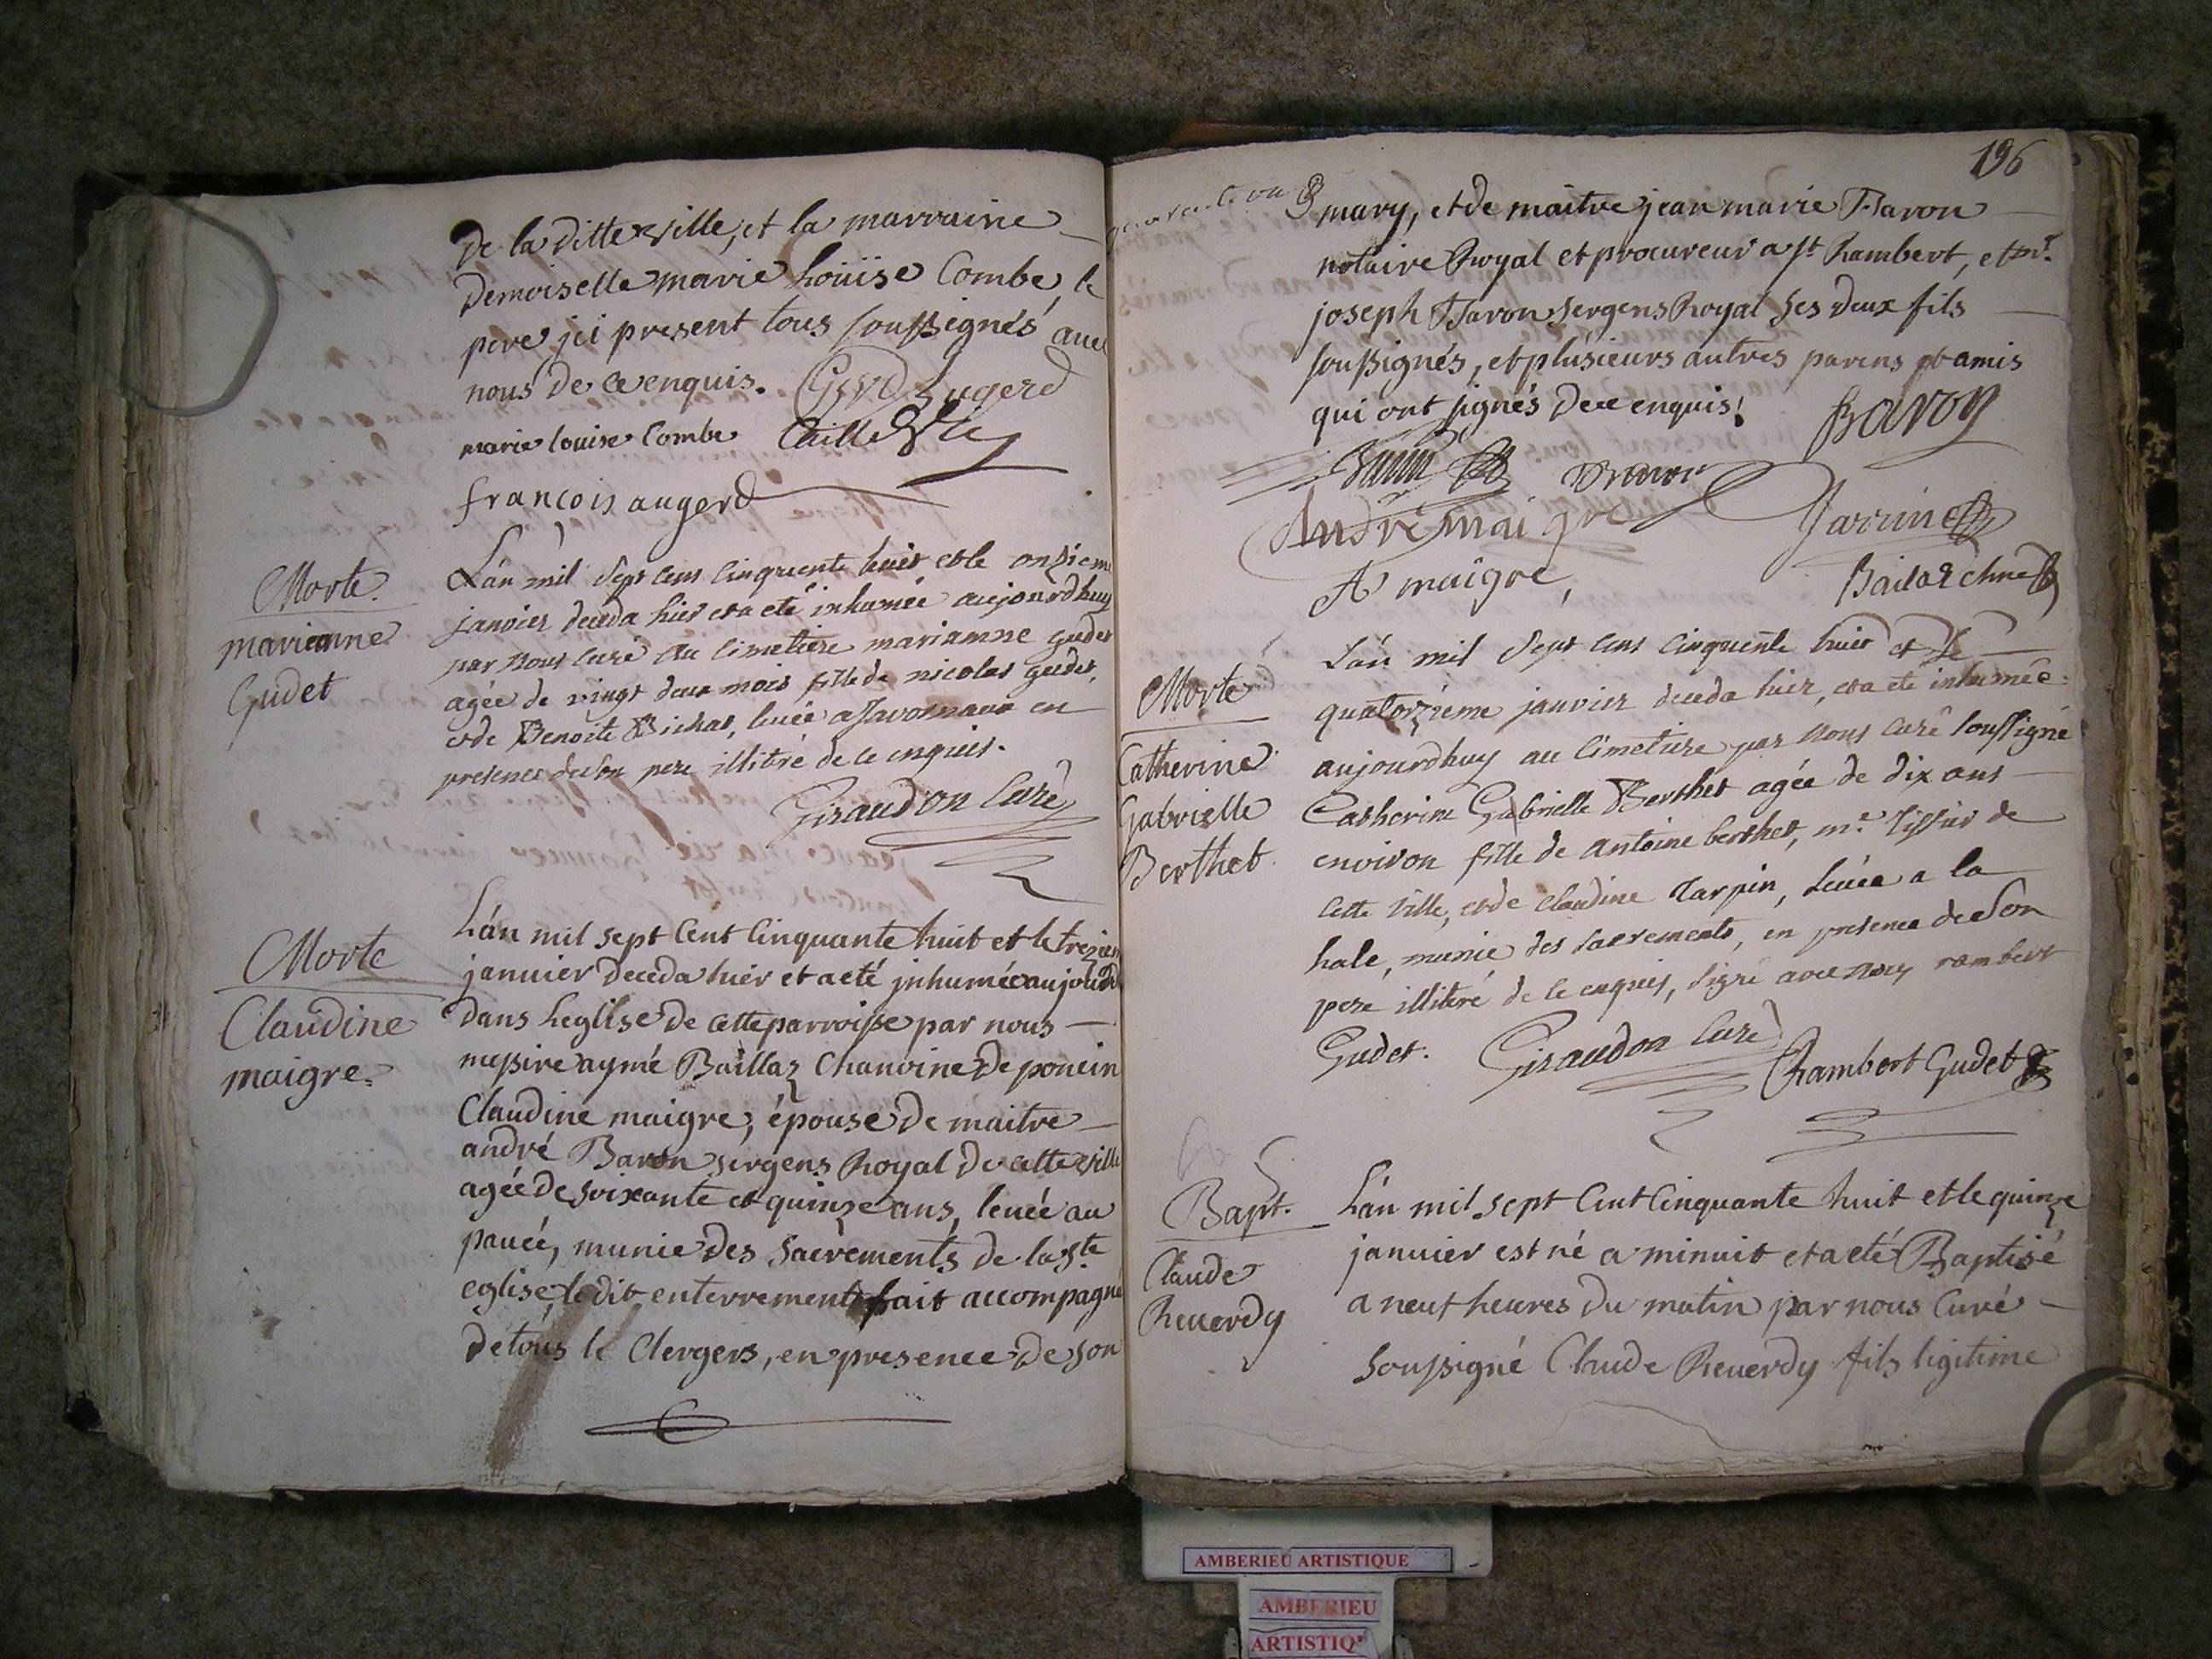 de la ditte ville, et la marraine
demoiselle marie Loüise Combe, le
pere jci present tous soussignés avec
nous de ce enquis. Augerd
marie louise Combe
francois augerd
Morte
marianne
Gudet
L'an mil sept cens cinquente huit et le onziem
janvier deceda hier et a eté inhumée aujourdhuy
par nous curé au cimetiere marianne gudet
agée de vingt deux mois fille de nicolas gudet,
et de Benoite Bichat, levée a Javornaux en
presence de son pere illitéré de ce enquis.
Giraudon Curé
Morte
Claudine
maigre
L'an mil sept Cent Cinquante huit et le trezien
janvier deceda hier et a eté jnhumée aujourd
dans Leglise de cette parroisse par nous
messire aymé Baillaz Chanoine de poncin
Claudine maigre, épouse de maitre
andré Baron sergens Royal de cette ville
agée de soixante et quinze ans, levée au
pavée, munie des sacrements de la ste
eglise, ledit enterrement fait accompagné
de tous le Clergers, en presence de son
196
mary, et de maitre jean marie Baron
notaire Royal et procureur a st Rambert, et mr.
joseph Baron sergens Royal ses deux fils
soussignés, et plusieurs autres parens et amis
qui ont signés de ce enquis!
Baron
André maigre
Jarrin
A maigre,
Baillaz chne
Morte
Catherine
Gabrielle
Berthet
L'an mil sept cens cinquente huit et le
quatorzieme janvier deceda hier, et a eté inhumée
aujourdhuy au cimetiere par nous curé soussigné
Catherine Gabrielle Berthet agée de dix ans
environ fille de antoine berthet, me. tissier de
cette ville, et de claudine tarpin, levée a la
hale, munie des sacrements, en presence de son
pere illitéré de ce enquis, signé avec nous rambert
Gudet. Giraudon Curé Rambert Gudet
Bapt.
Claude
Reverdy
L'an mil sept Cent Cinquante huit et le quinze
janvier est né a minuit et a eté Baptisé
a neuf heures du matin par nous Curé
soussigné Claude Reverdy fils ligitime
AMBERIEU ARTISTIQUE
AMBERIEU
ARTISTIQ